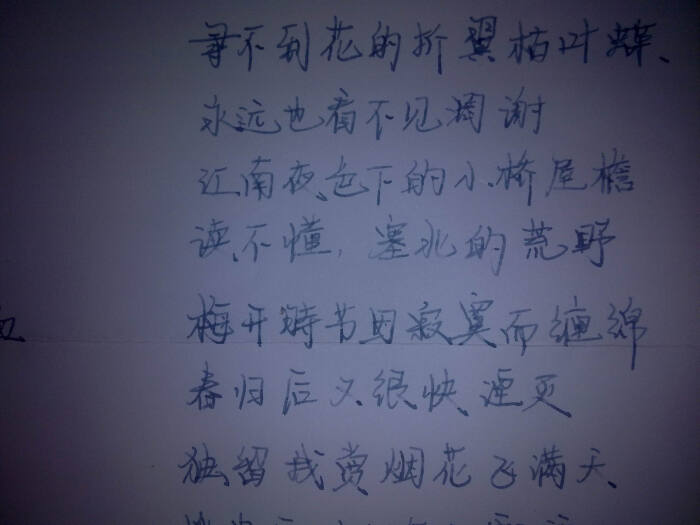 寻不到花的折翼枯叶蝶、
永远也看不见凋谢
江南夜色下的小桥屋檐
读不懂,塞北的荒野
梅开时节因寂寞而缠绵
春归后又很快湮灭
独留我赏烟花飞满天